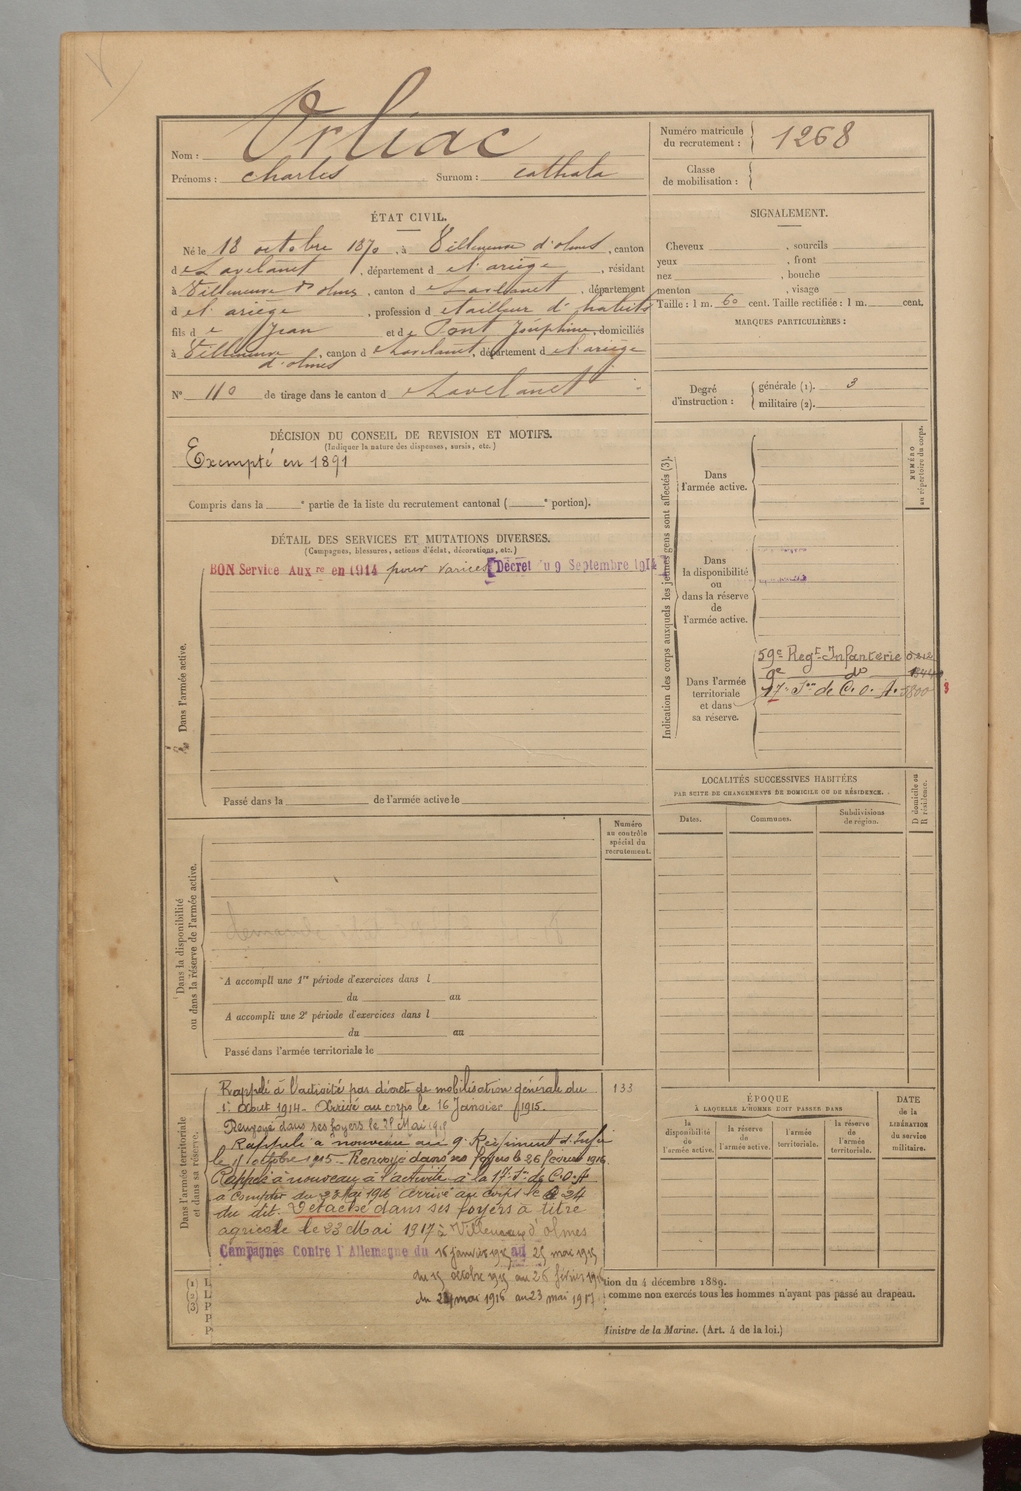 Nom : Orliac
Prénoms : Charles Surnom : Cathala
Numéro matricule du recrutement : 1268
Classe de mobilisation :
ÉTAT CIVIL.
Né le 18 octobre 1870, à Villeneuve d'olmes, canton
de Lavelanet, département de l'ariège, résidant
à Villeneuve d'olmes, canton de Lavelanet, département
de l'ariège, profession de tailleur d'habits
fils de Jean et de Pont Joséphine, domiciliés
à Villeneuve d'olmes, canton de Lavelanet, département de l'ariège
N° 110 de tirage dans le canton de Lavelanet
SIGNALEMENT.
Cheveux , sourcils
yeux , front
nez , bouche
menton , visage
Taille : 1 m. 60 cent. Taille rectifiée : 1 m. cent.
MARQUES PARTICULIÈRES :
Degré d'instruction : générale (1). 3
militaire (2).
DÉCISION DU CONSEIL DE REVISION ET MOTIFS.
(Indiquer la nature des dispenses, sursis, etc.)
Exempté en 1891
Compris dans la e partie de la liste du recrutement cantonal ( e portion).
DÉTAIL DES SERVICES ET MUTATIONS DIVERSES.
(Campagnes, blessures, actions d'éclat, décorations, etc.)
BON Service Aux re en 1914 pour varices [Décret du 9 Septembre 1914]
Dans l'armée active.
Passé dans la de l'armée active le
Indication des corps auxquels les jeunes gens sont affectés (3).
NUMÉRO au répertoire du corps.
Dans l'armée active.
Dans la disponibilité ou dans la réserve de l'armée active.
Dans l'armée territoriale et dans sa réserve.
59e Regt Infanterie
9e do
17e Son de C. O. A.
LOCALITÉS SUCCESSIVES HABITÉES
PAR SUITE DE CHANGEMENTS DE DOMICILE OU DE RÉSIDENCE.
D domicile ou R résidence.
Dates. Communes. Subdivisions de région.
Numéro au contrôle spécial du recrutement.
Dans la disponibilité ou dans la réserve de l'armée active.
A accompli une 1re période d'exercices dans l
du au
A accompli une 2e période d'exercices dans l
du au
Passé dans l'armée territoriale le
Dans l'armée territoriale et dans sa réserve.
133
Rappelé à l'activité par décret de mobilisation générale du
1er Aout 1914 - Arrivé au corps le 16 Janvier 1915.
Renvoyé dans ses foyers le 25 Mai 1915
Rappelé à nouveau au 9e Régiment d'Infie
le 15 octobre 1915 - Renvoyé dans ses foyers le 26 février 1916.
Rappelé à nouveau à l'activité à la 17e Son de C.O.A
à compter du 23 Mai 1916 Arrivé au corps le 24
du dit. Détaché dans ses foyers à titre
agricole le 23 Mai 1917 à Villeneuve d'olmes
Campagnes Contre l'Allemagne du 16 janvier 1915 au 25 mai 1915
du 15 octobre 1915 au 26 février 1916
du 24 mai 1916 au 23 mai 1917
ÉPOQUE
À LAQUELLE L'HOMME DOIT PASSER DANS
la disponibilité de l'armée active.
la réserve de l'armée active.
l'armée territoriale.
la réserve de l'armée territoriale.
DATE de la LIBÉRATION du service militaire.
(1) L
(2) L
(3) P
P
P
tion du 4 décembre 1889.
comme non exercés tous les hommes n'ayant pas passé au drapeau.
Ministre de la Marine. (Art. 4 de la loi.)